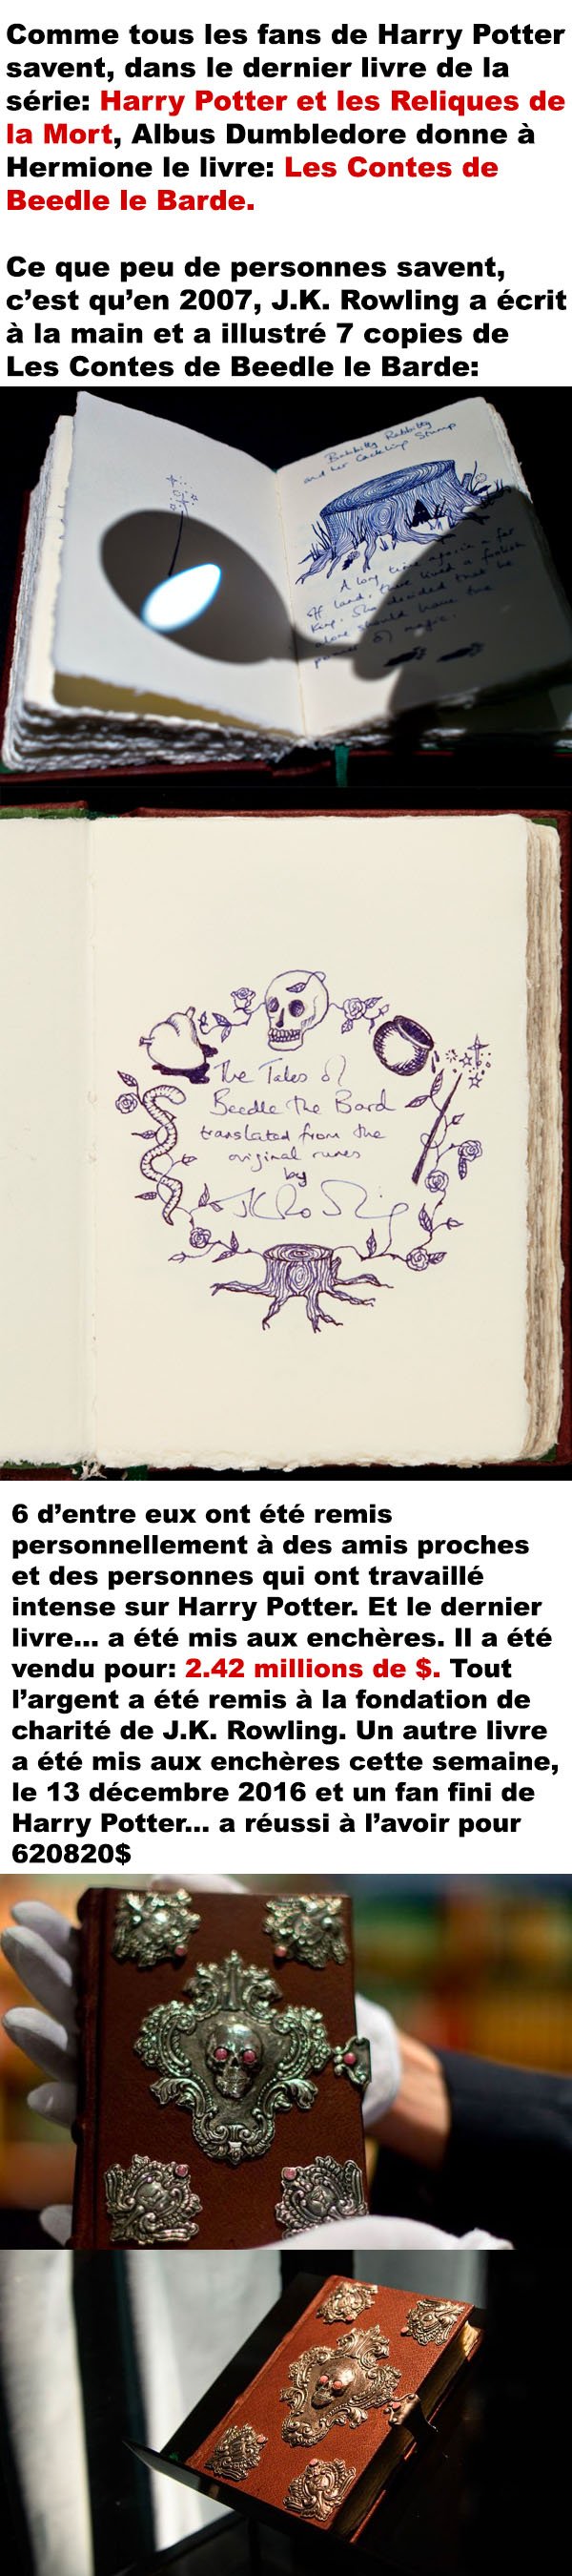 Comme tous les fans de Harry Potter
savent, dans le dernier livre de la
série: Harry Potter et les Reliques de
la Mort, Albus Dumbledore donne à
Hermione le livre: Les Contes de
Beedle le Barde.
Ce que peu de personnes savent,
c’est qu’en 2007, J.K. Rowling a écrit
à la main et a illustré 7 copies de
Les Contes de Beedle le Barde:
Babbitty Rabbitty
and her Cackling Stump
A long time ago, in a far
off land, there lived a foolish
King. She decided that he
alone should have the
power of magic.
The Tales of
Beedle the Bard
translated from the
original runes
by
JK Rowling
6 d’entre eux ont été remis
personnellement à des amis proches
et des personnes qui ont travaillé
intense sur Harry Potter. Et le dernier
livre... a été mis aux enchères. Il a été
vendu pour: 2.42 millions de $. Tout
l’argent a été remis à la fondation de
charité de J.K. Rowling. Un autre livre
a été mis aux enchères cette semaine,
le 13 décembre 2016 et un fan fini de
Harry Potter... a réussi à l’avoir pour
620820$